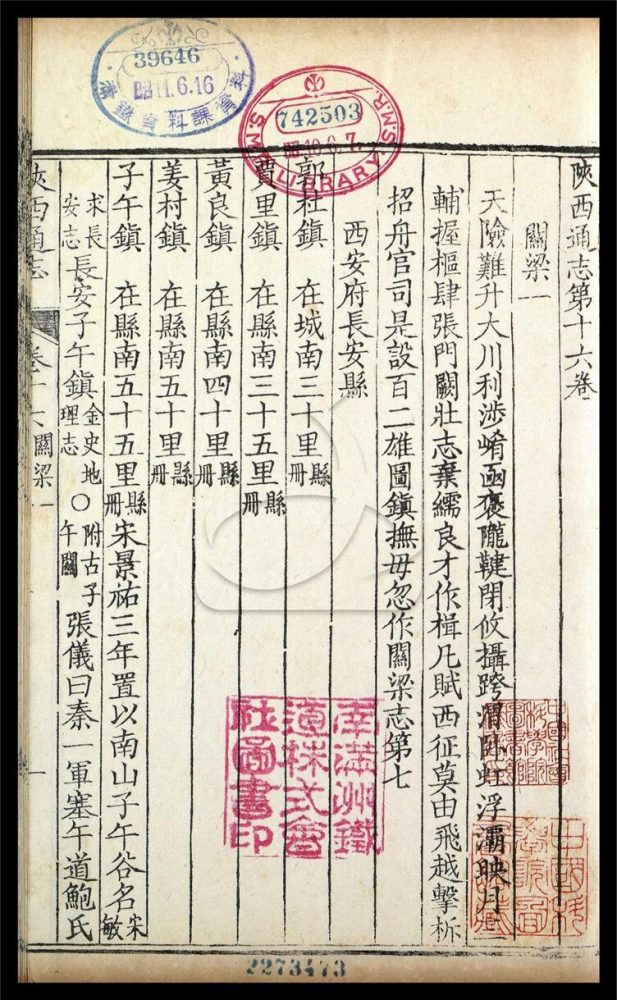 39646
昭11.6.16
742503
昭10.6.7
S.M.R. LIBRARY. S.M.R.
陝西通志第十六卷
關梁一
天險難升大川利涉崤函褒隴鍵閉攸攝跨渭臥虹浮灞映月三
輔握樞肆張門闕壯志棄繻良才作楫凡賦西征莫由飛越擊柝
招舟官司是設百二雄圖鎮撫毋忽作關梁志第七
西安府長安縣
郭杜鎮 在城南三十里縣冊
賈里鎮 在縣南三十五里縣冊
黃良鎮 在縣南四十里縣冊
姜村鎮 在縣南五十里縣冊
子午鎮 在縣南五十五里縣冊宋景祐三年置以南山子午谷名宋敏
求長安志長安子午鎮金史地理志○附古子午關 張儀曰秦一軍塞午道鮑氏
陝西通志 卷十六 關梁一 一
南滿洲鐵
道株式會
社圖書印
2273473